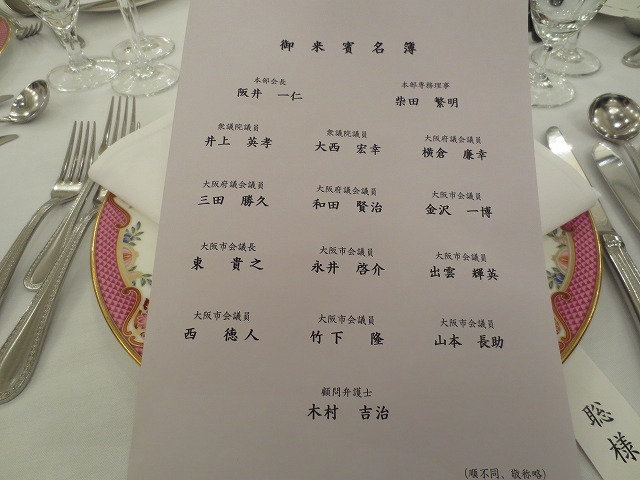 御来賓名簿
本部会長 本部専務理事
阪井 一仁 柴田 繁明
衆議院議員 衆議院議員 大阪府議会議員
井上 英孝 大西 宏幸 横倉 廉幸
大阪府議会議員 大阪府議会議員 大阪市会議員
三田 勝久 和田 賢治 金沢 一博
大阪市会議長 大阪市会議員 大阪市会議員
東 貴之 永井 啓介 出雲 輝英
大阪市会議員 大阪市会議員 大阪市会議員
西 徳人 竹下 隆 山本 長助
顧問弁護士
木村 吉治
(順不同、敬称略)
聡様